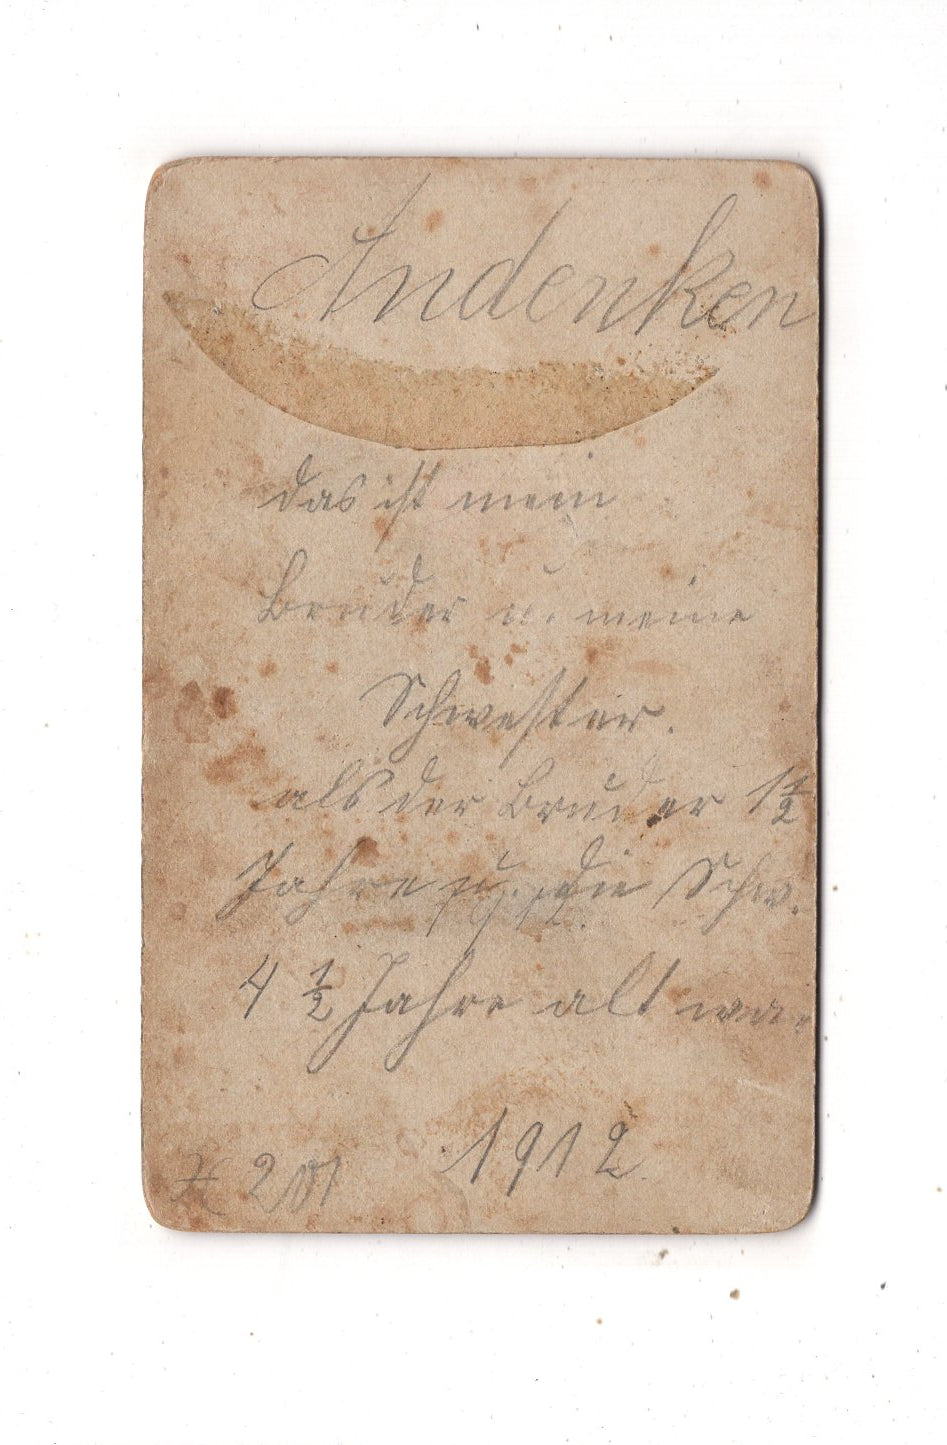 Andenken
das ist mein
Bruder u. meine
Schwester.
als der Bruder 1½
Jahre u. die Schw.
4 ½ Jahre alt war
1912.